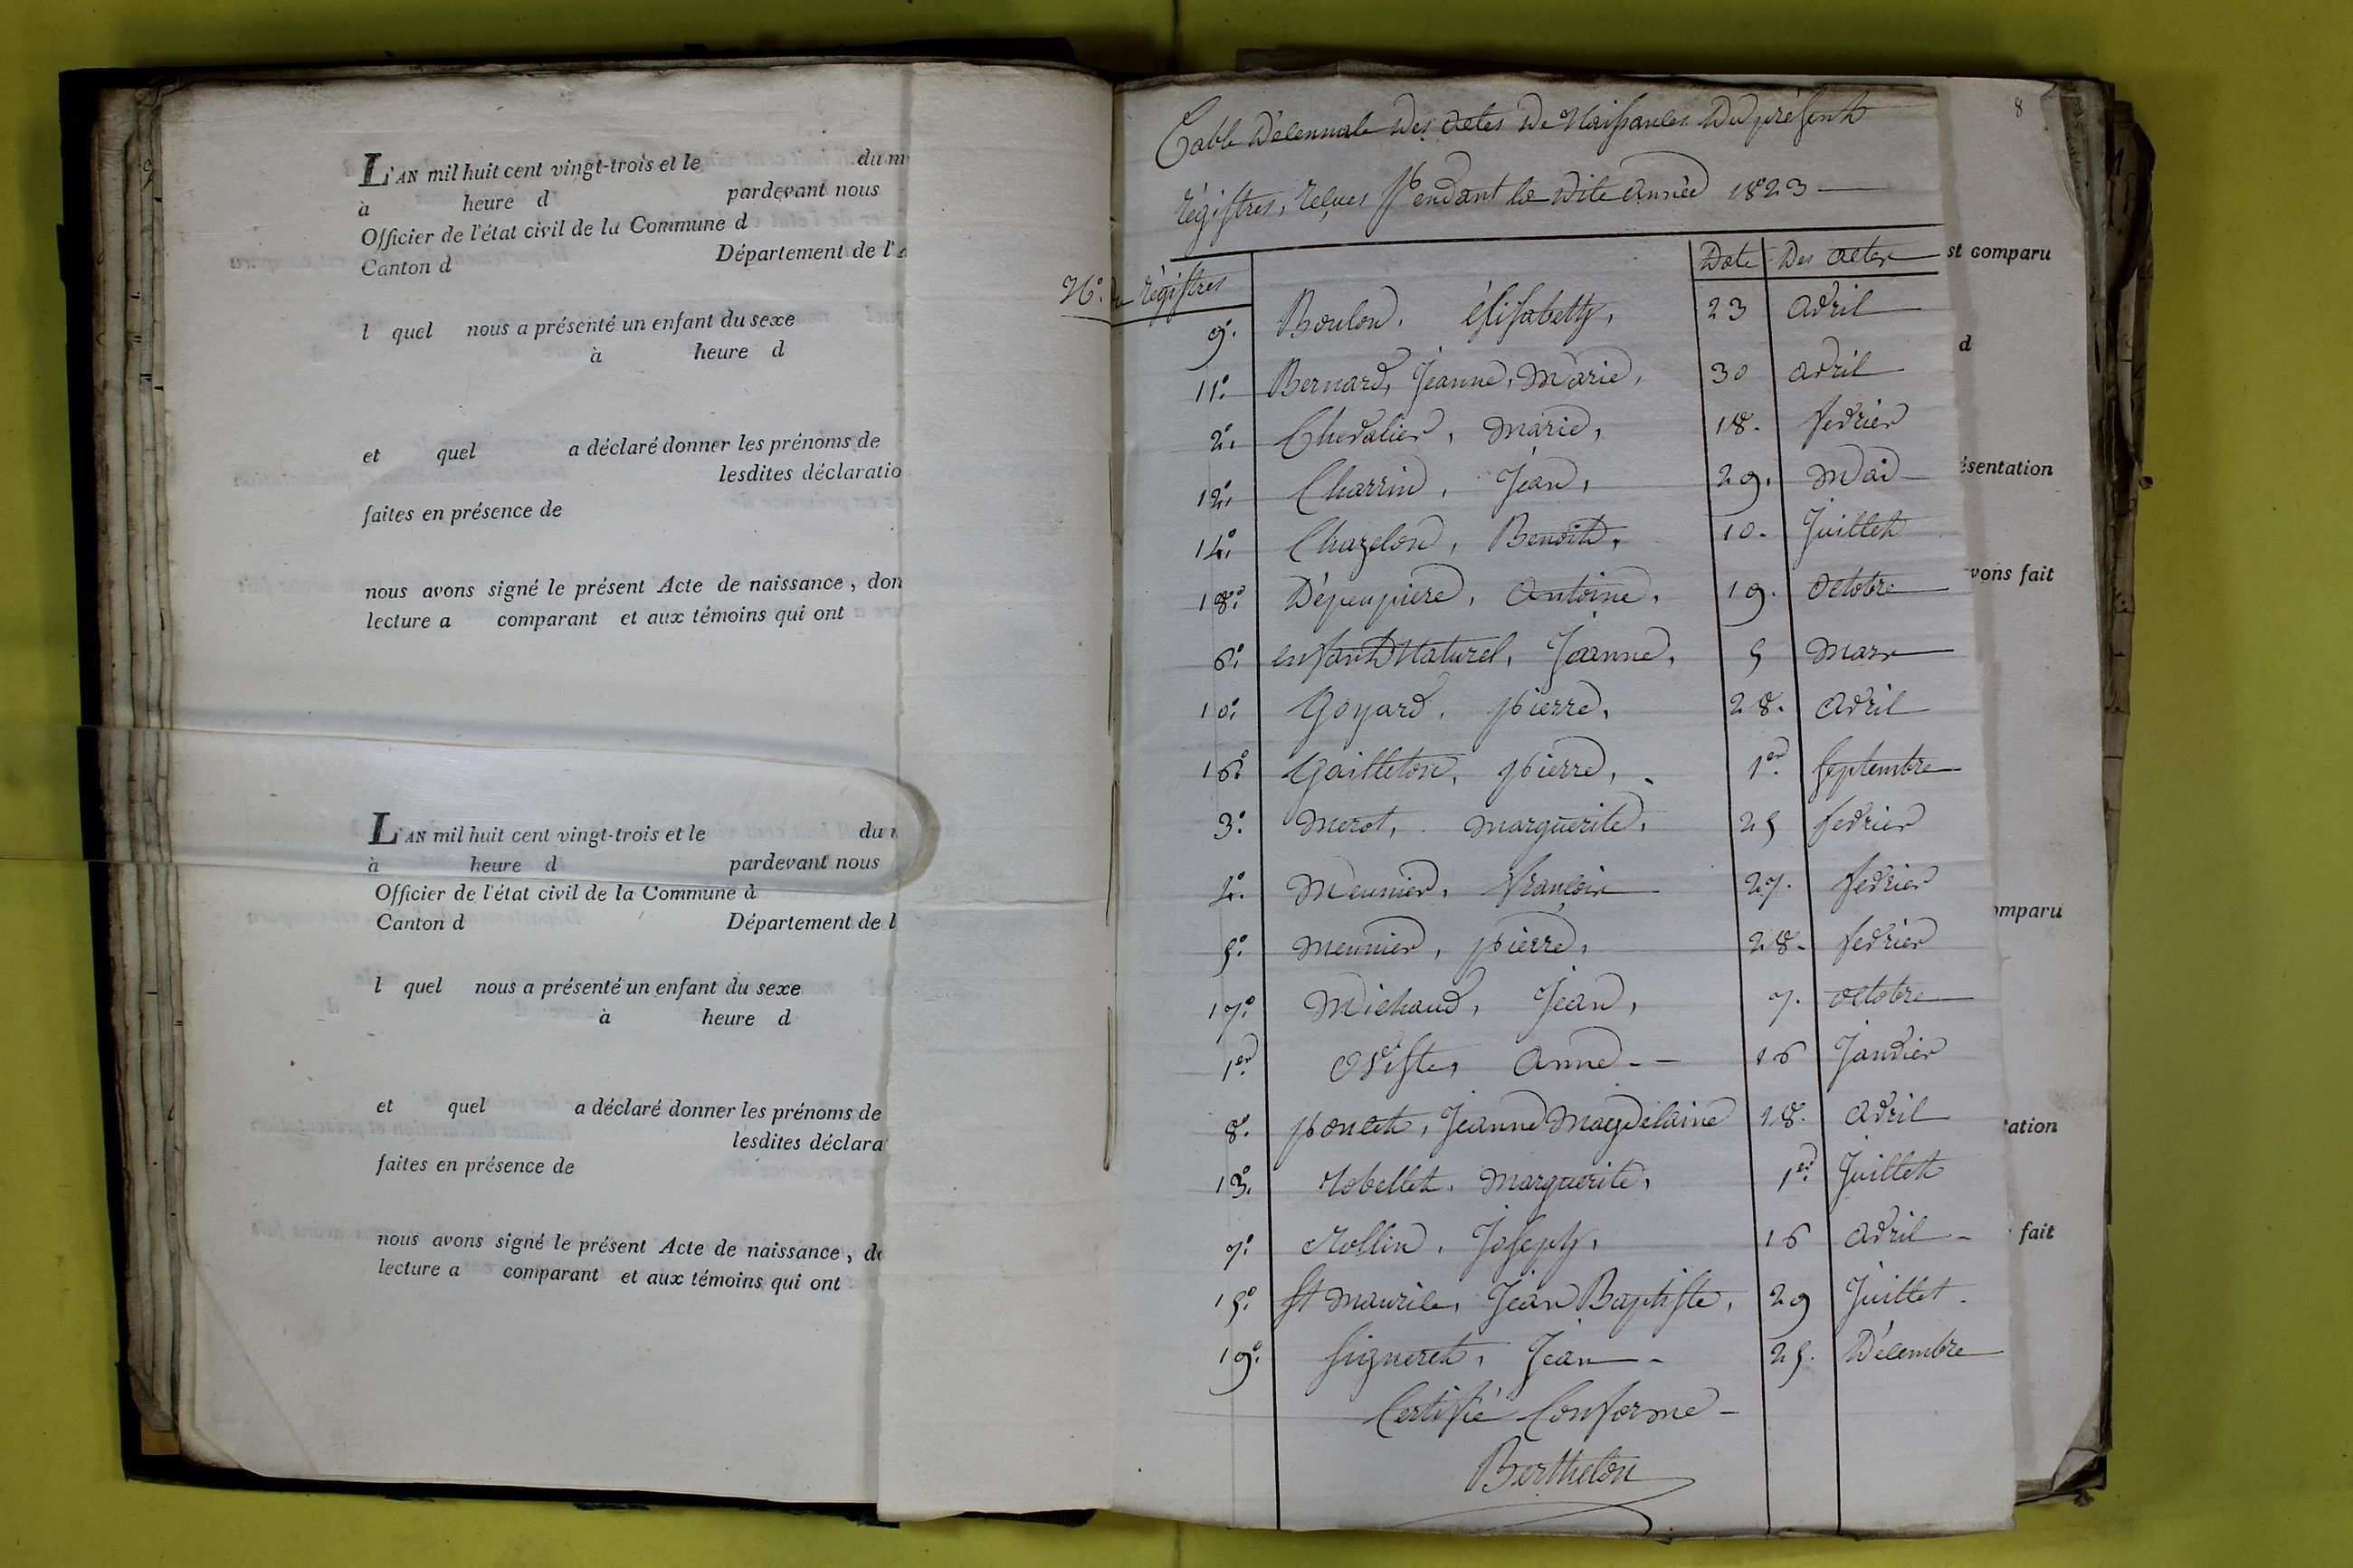 L'AN mil huit cent vingt-trois et le du m
à heure d pardevant nous
Officier de l'état civil de la Commune d
Canton d Département de l'
l quel nous a présenté un enfant du sexe
à heure d
et quel a déclaré donner les prénoms de
lesdites déclaratio
faites en présence de
nous avons signé le présent Acte de naissance, don
lecture a comparant et aux témoins qui ont
L'AN mil huit cent vingt-trois et le du
à heure d pardevant nous
Officier de l'état civil de la Commune d
Canton d Département de l
l quel nous a présenté un enfant du sexe
à heure d
et quel a déclaré donner les prénoms de
lesdites déclara
faites en présence de
nous avons signé le présent Acte de naissance, de
lecture a comparant et aux témoins qui ont
8
Table Décennale Des actes De Naissances Du présent
régistres, reçues Pendant la dite année 1823
N.º de régistres Date Des actes
9º. Boulon, élisabeth, 23 avril
11º. Bernard, Jeanne, Marie, 30 avril
2º. Chevalier, Marie, 18. fevrier
12º. Charrin, Jean, 29. Mai
14º. Chazelon, Benoit, 10. Juillet
18º. Dépeupiere, Antoine, 19. Octobre
6º. enfant Naturel, Jeanne, 5 Mars
10º. Goyard, pierre, 28. avril
16º. Gailleton, pierre, 1er. Septembre
3º. Merot, Marguerite, 25 fevrier
4º. Meunier, françois 27. fevrier
5º. Meunier, pierre, 28. fevrier
17º. Michaud, Jean, 7. octobre
1er. Oviste, Anne 16 Janvier
8º. poncet, Jeanne Magdelaine 18. avril
13º. Robellet, Marguerite, 1er. Juillet
7º. Rollin, Joseph, 16 avril
15º. St Maurice, Jean Baptiste, 29 Juillet.
19º. Signeret, Jean 25. Décembre
Certifié Conforme
Berthelon
st comparu
d
ésentation
vons fait
omparu
tation
fait